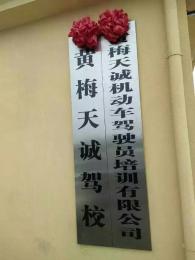 黄梅天诚机动车驾驶员培训有限公司
黄梅天诚驾校